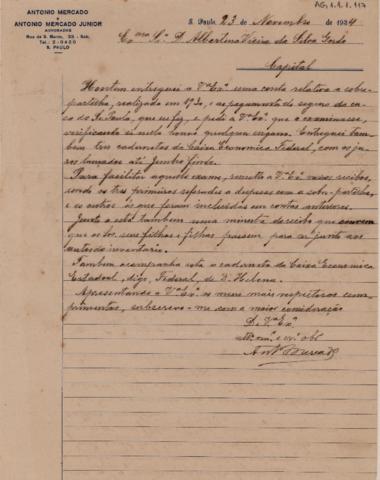 AG.1.1.1.117
ANTONIO MERCADO
E
ANTONIO MERCADO JUNIOR
ADVOGADOS
S. PAULO
S. Paulo, 23 de Novembro de 1934
Ex.ma Sr.ª D. Albertina Vieira da Silva Gordo
Capital
Hontem entreguei a V.ª Ex.ª uma conta relativa a sobre-
partilha, realizada em 1930, e ao pagamento do seguro da ca-
sa de S. Paulo, que eu fiz, e pedi a V.ª Ex.ª que a examinasse,
verificando se nella houve qualquer engano. Entreguei tam-
bem tres cadernetas da Caixa Economica Federal, com os ju-
ros lançados até Junho findo.
Para facilitar aquelle exame, remetto a V.ª Ex.ª varios recibos,
sendo os tres primeiros referentes a despesas com a sobre-partilha,
e os outros os que foram incluidos em contas anteriores.
Junto a esta tambem uma minuta de recibo que convem
que os srs. seus filhos e filhas passem para ser junto aos
autos do inventario.
Tambem acompanha esta a caderneta da Caixa Economica
Estadoal, digo, Federal, de D. Helena.
Apresentando a V.ª Ex.ª os meus mais respeitosos cum-
primentos, subscrevo-me com a maior consideração
D. V.ª Ex.ª
Ant. Mercado